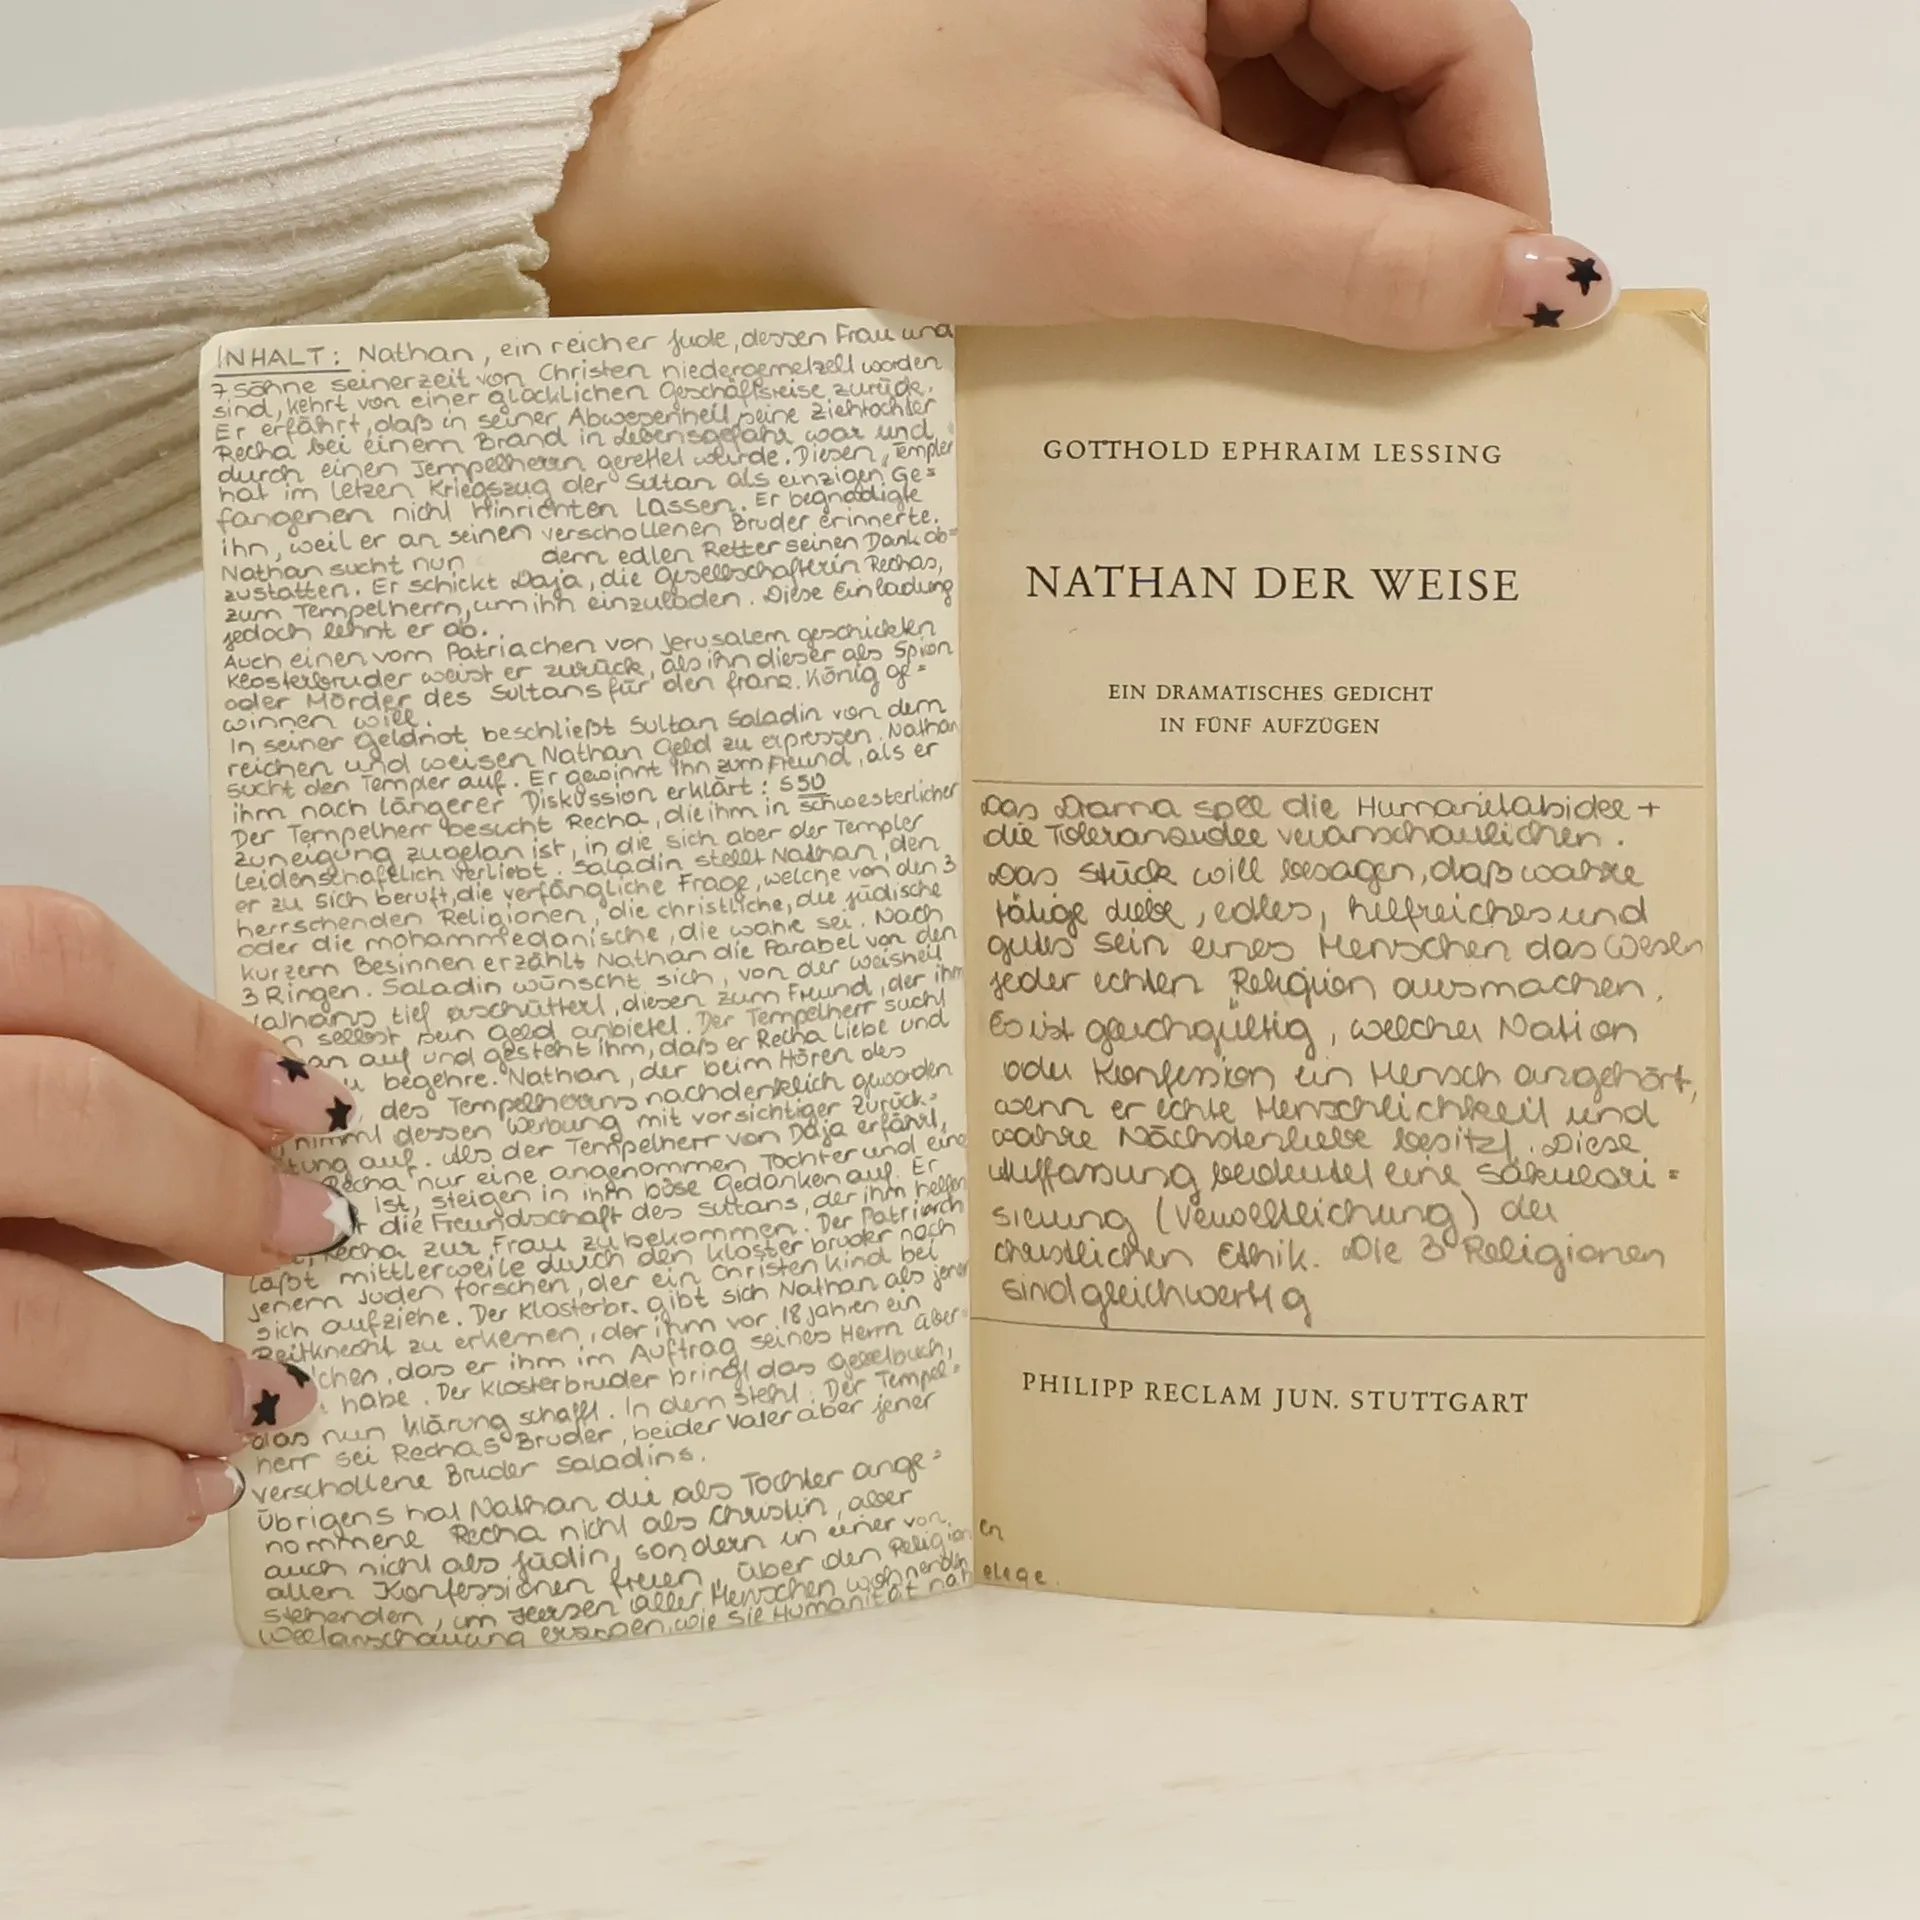 INHALT: Nathan, ein reicher Jude, dessen Frau und
7 Söhne seinerzeit von Christen niedergemetzelt worden
sind, kehrt von einer glücklichen Geschäftsreise zurück.
Er erfährt, daß in seiner Abwesenheit seine Ziehtochter
Recha bei einem Brand in Lebensgefahr war und
durch einen Tempelherrn gerettet wurde. Diesen Templer
hat im letzen Kriegszug der Sultan als einzigen Ge=
fangenen nicht hinrichten lassen. Er begnadigte
ihn, weil er an seinen verschollenen Bruder erinnerte.
Nathan sucht nun dem edlen Retter seinen Dank ab=
zustatten. Er schickt Daja, die Gesellschafterin Rechas,
zum Tempelherrn, um ihn einzuladen. Diese Einladung
jedoch lehnt er ab.
Auch einen vom Patriachen von Jerusalem geschickten
Klosterbruder weist er zurück, als ihn dieser als Spion
oder Mörder des Sultans für den franz. König ge=
winnen will.
In seiner Geldnot beschließt Sultan Saladin von dem
reichen und weisen Nathan Geld zu erpressen. Nathan
sucht den Templer auf. Er gewinnt ihn zum Freund, als er
ihm nach längerer Diskussion erklärt: S50
Der Tempelherr besucht Recha, die ihm in schwesterlicher
Zuneigung zugetan ist, in die sich aber der Templer
leidenschaftlich verliebt. Saladin stellt Nathan, den
er zu sich beruft, die verfängliche Frage, welche von den 3
herrschenden Religionen, die christliche, die jüdische
oder die mohammedanische, die wahre sei. Nach
kurzem Besinnen erzählt Nathan die Parabel von den
3 Ringen. Saladin wünscht sich, von der Weisheit
Nathans tief erschüttert, diesen zum Freund, der ihm
selbst sein Geld anbietet. Der Tempelherr sucht
an auf und gesteht ihm, daß er Recha liebe und
begehre. Nathan, der beim Hören des
des Tempelherrns nachdenklich geworden
nimmt dessen Werbung mit vorsichtiger Zurück=
tung auf. Als der Tempelherr von Daja erfährt,
Recha nur eine angenommen Tochter und eine
ist, steigen in ihm böse Gedanken auf. Er
die Freundschaft des Sultans, der ihm helfen
Recha zur Frau zu bekommen. Der Patriarch
läßt mittlerweile durch den Klosterbruder nach
jenem Juden forschen, der ein Christenkind bei
sich aufziehe. Der Klosterbr. gibt sich Nathan als jener
Reitknecht zu erkennen, der ihm vor 18 Jahren ein
chen, das er ihm im Auftrag seines Herrn über=
habe. Der Klosterbruder bringt das Gebetbuch,
das nun Klärung schafft. In dem steht: Der Tempel=
herr sei Rechas Bruder, beider Vater aber jener
verschollene Bruder Saladins.
Übrigens hat Nathan die als Tochter ange=
nommene Recha nicht als Christin, aber
auch nicht als Jüdin, sondern in einer von
allen Konfessionen freien, über den Religionen
stehenden, im Herzen aller Menschen wohnenden
Weltanschauung erzogen, wie sie Humanität nahelege.
GOTTHOLD EPHRAIM LESSING
NATHAN DER WEISE
EIN DRAMATISCHES GEDICHT
IN FÜNF AUFZÜGEN
Das Drama soll die Humanitätsidee +
die Toleranzidee veranschaulichen.
Das Stück will besagen, daß wahre
tätige Liebe, edles, hilfreiches und
gutes Sein eines Menschen das Wesen
jeder echten Religion ausmachen.
Es ist gleichgültig, welcher Nation
oder Konfession ein Mensch angehört,
wenn er echte Menschlichkeit und
wahre Nächstenliebe besitzt. Diese
Auffassung bedeutet eine Säkulari=
sierung (Verweltlichung) der
christlichen Ethik. Die 3 Religionen
sind gleichwertig
PHILIPP RECLAM JUN. STUTTGART